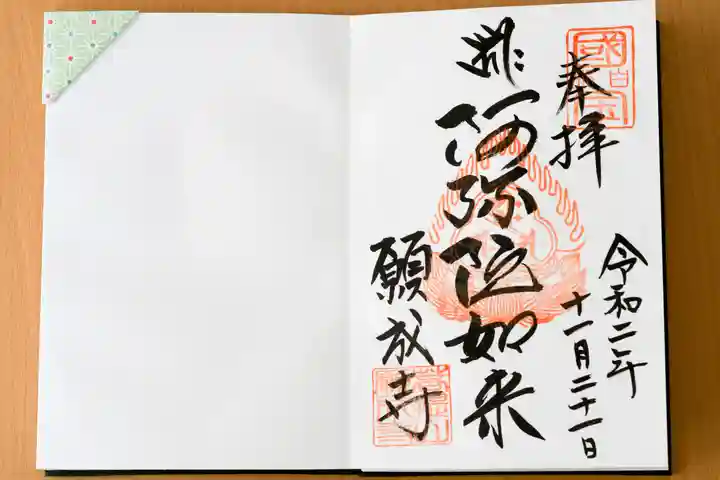 奉拝
令和二年
十一月二十一日
阿弥陀如来
願成寺
國宝